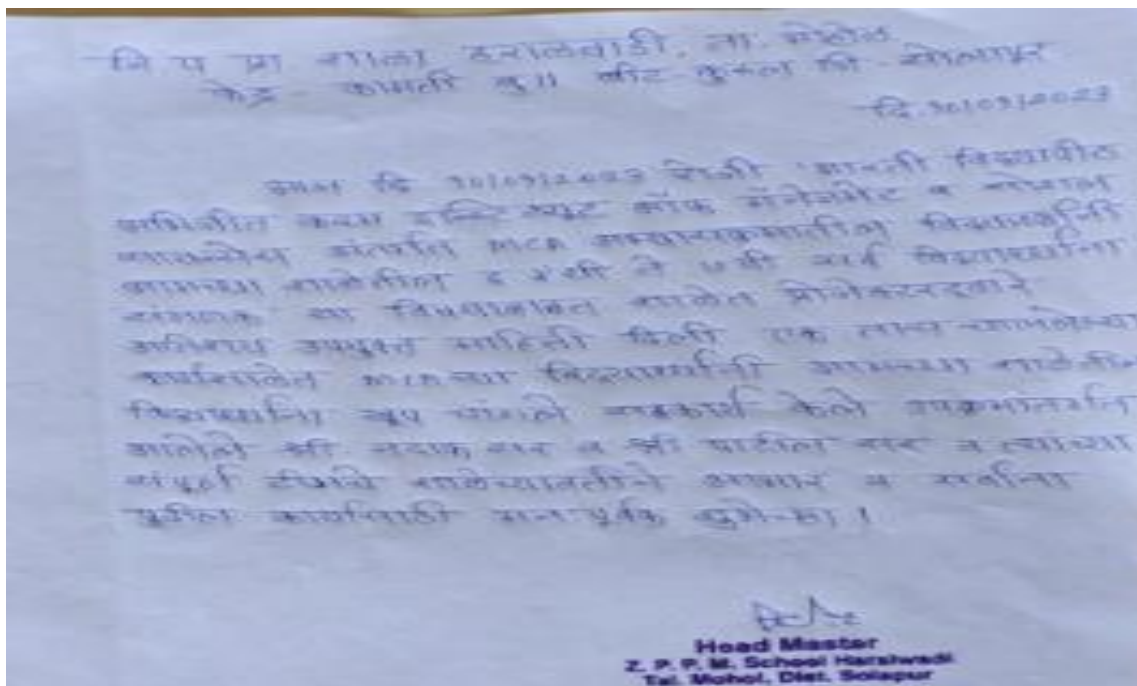 जि प प्रा शाळा हराळवाडी, ता. मोहोळ
केंद्र - कामती बु॥ बीट कुरुल जी. सोलापूर
दि. १०/०१/२०२३
आज दि १०/०१/२०२३ रोजी भारती विद्यापीठ
अभिजीत कदम इन्स्टिट्यूट ऑफ मॅनेजमेंट व सोशल
अंतर्गत MCA अभ्यासक्रमातील विद्यार्थ्यांनी
आमच्या शाळेतील इ ते ७वी सर्व विद्यार्थ्यांना
संगणक या विषयाबाबत शाळेत प्रोजेक्टरद्वारे
अतिशय उपयुक्त माहिती दिली एक तास चाललेल्या
कार्यशाळेत MCA च्या विद्यार्थ्यांनी आमच्या शाळेतील
विद्यार्थ्यांना खूप चांगले सहकार्य केले उपक्रमांतर्गत
आलेले श्री. नदाफ सर व श्री पाटील सर व त्यांच्या
संपूर्ण टीमचे शाळेच्यावतीने आभार व सर्वांना
पुढील कार्यासाठी मन:पूर्वक शुभेच्छा !
Head Master
Z. P. P. M. School Haralwadi
Tal. Mohol, Dist. Solapur